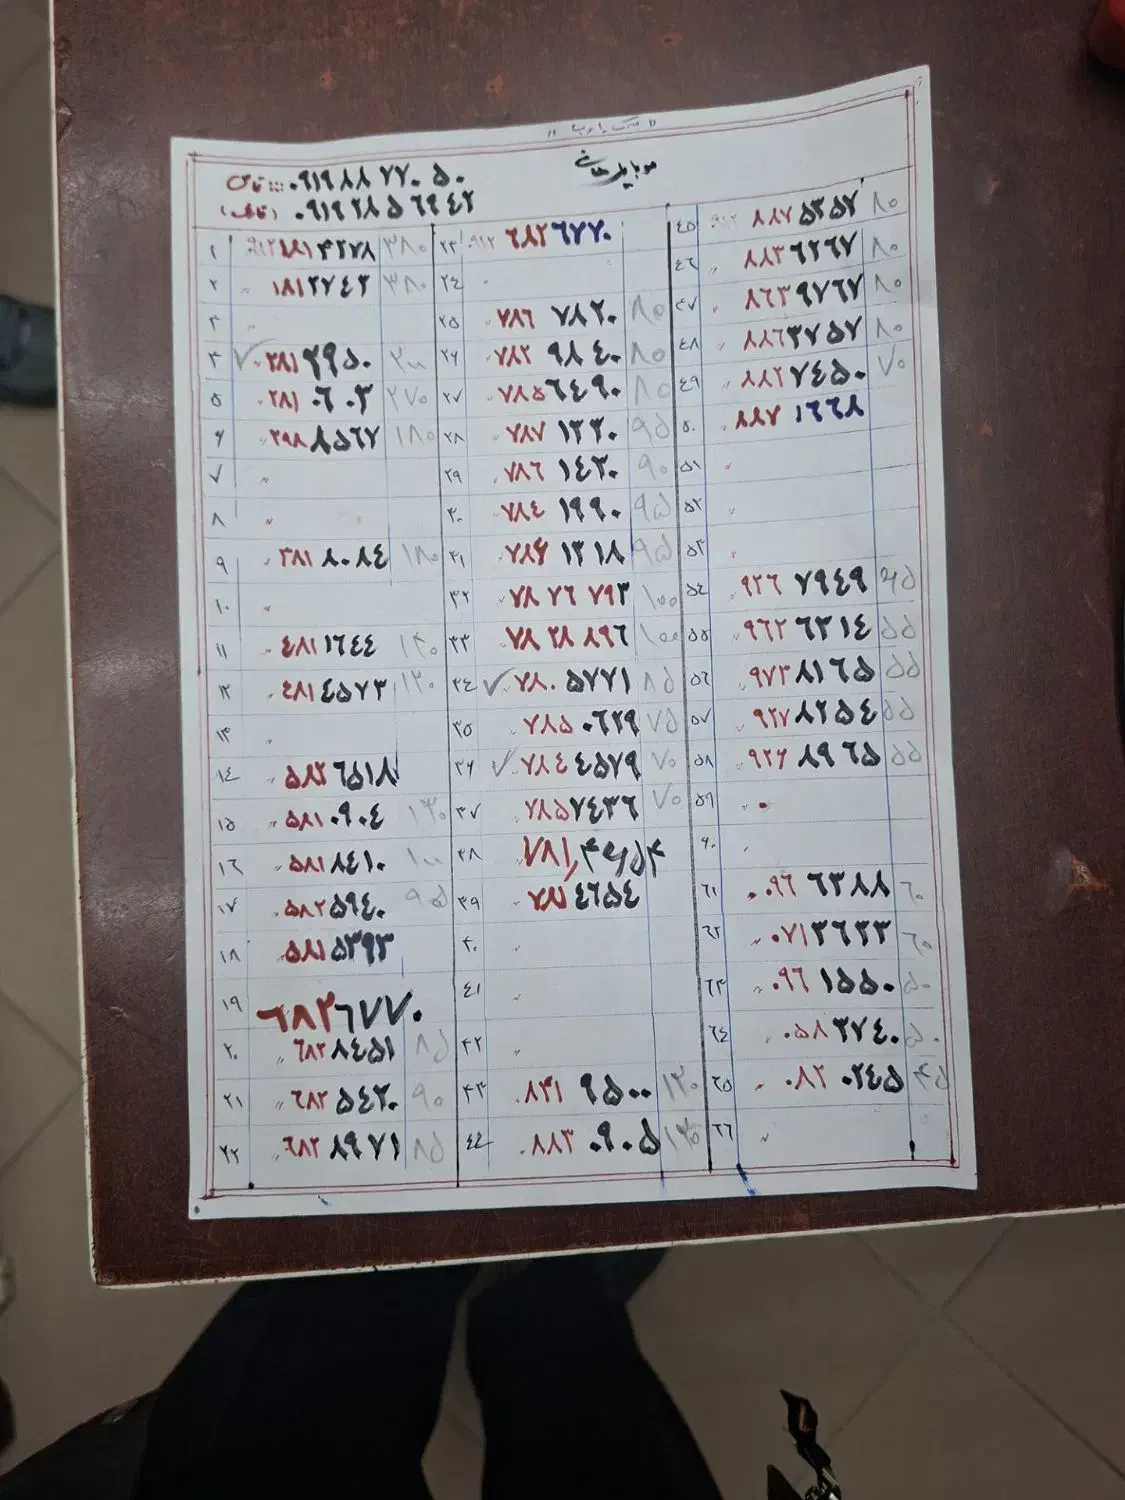 موبایل خانی
تماس: ۰۹۱۹۸۸۷۷۰۵۰
۰۹۱۹۲۸۵۶۹۴۲
۱ ۹۱۲ ۸۸۱ ۳۲۷۸ ۳۸۰
۲ " ۱۸۱ ۲۷۴۳ ۳۸۰
۳ "
۴ ✓ " ۲۸۱ ۲۹۵۰ ۲۰۰
۵ " ۲۸۱ ۰۶۰۳ ۲۷۰
۶ " ۲۹۸ ۸۵۶۷ ۱۸۰
۷ "
۸ "
۹ " ۳۸۱ ۸۰۸۴ ۱۸۰
۱۰ "
۱۱ " ۴۸۱ ۱۶۴۴ ۱۳۰
۱۲ " ۴۸۱ ۴۵۷۳ ۱۲۰
۱۳ "
۱۴ " ۵۸۲ ۶۵۱۸
۱۵ " ۵۸۱ ۰۹۰۴ ۱۳۰
۱۶ " ۵۸۱ ۸۴۱۰ ۱۰۰
۱۷ " ۵۸۲ ۵۹۴۰ ۹۵
۱۸ " ۵۸۱ ۵۳۹۳
۱۹ ۶۸۲ ۶۷۷۰
۲۰ " ۶۸۲ ۸۴۵۱ ۸۵
۲۱ " ۶۸۲ ۵۴۲۰ ۹۰
۲۲ " ۶۸۲ ۸۹۷۱ ۸۵
۲۳ ۹۱۲ ۶۸۲ ۶۷۷۰
۲۴ "
۲۵ " ۷۸۶ ۷۸۲۰ ۸۰
۲۶ " ۷۸۲ ۹۸۴۰ ۸۰
۲۷ " ۷۸۵ ۶۴۹۰ ۸۰
۲۸ " ۷۸۷ ۱۳۳۰ ۹۵
۲۹ " ۷۸۶ ۱۴۳۰ ۹۰
۳۰ " ۷۸۴ ۱۹۹۰ ۹۵
۳۱ " ۷۸۶ ۱۳۱۸ ۹۵
۳۲ " ۷۸ ۷۶ ۷۹۳ ۱۰۰
۳۳ " ۷۸ ۲۸ ۸۹۶ ۱۰۰
۳۴ ✓ " ۷۸۰ ۵۷۷۱ ۸۵
۳۵ " ۷۸۵ ۰۶۲۹ ۷۵
۳۶ ✓ " ۷۸۴ ۴۵۷۹ ۷۰
۳۷ " ۷۸۵ ۷۴۳۶ ۷۰
۳۸ " ۷۸۱
۳۹ ۴۶۵۴
۴۰ "
۴۱ "
۴۲ "
۴۳ " ۸۳۱ ۹۵۰۰ ۱۳۰
۴۴ " ۸۸۳ ۰۹۰۵ ۱۳۵
۴۵ ۹۱۲ ۸۸۷ ۵۳۵۷ ۸۰
۴۶ " ۸۸۳ ۶۲۶۷ ۸۰
۴۷ " ۸۶۳ ۹۷۶۷ ۸۰
۴۸ " ۸۸۶ ۳۷۵۷ ۸۰
۴۹ " ۸۸۲ ۷۴۵۰ ۷۰
۵۰ " ۸۸۷ ۱۶۶۸
۵۱ "
۵۲ "
۵۳ "
۵۴ " ۹۲۶ ۷۹۴۹ ۶۵
۵۵ " ۹۶۲ ۶۳۱۴ ۵۵
۵۶ " ۹۷۳ ۸۱۶۵ ۵۵
۵۷ " ۹۲۷ ۸۲۵۴ ۵۵
۵۸ " ۹۲۶ ۸۹۶۵ ۵۵
۵۹ "
۶۰ "
۶۱ " ۰۹۶ ۶۳۸۸ ۶۰
۶۲ " ۰۷۱ ۳۶۳۳ ۶۰
۶۳ " ۰۹۶ ۱۵۵۰ ۵۰
۶۴ " ۰۵۸ ۳۷۴۰ ۵۰
۶۵ " ۰۸۲ ۰۲۴۵ ۴۵
۶۶ "